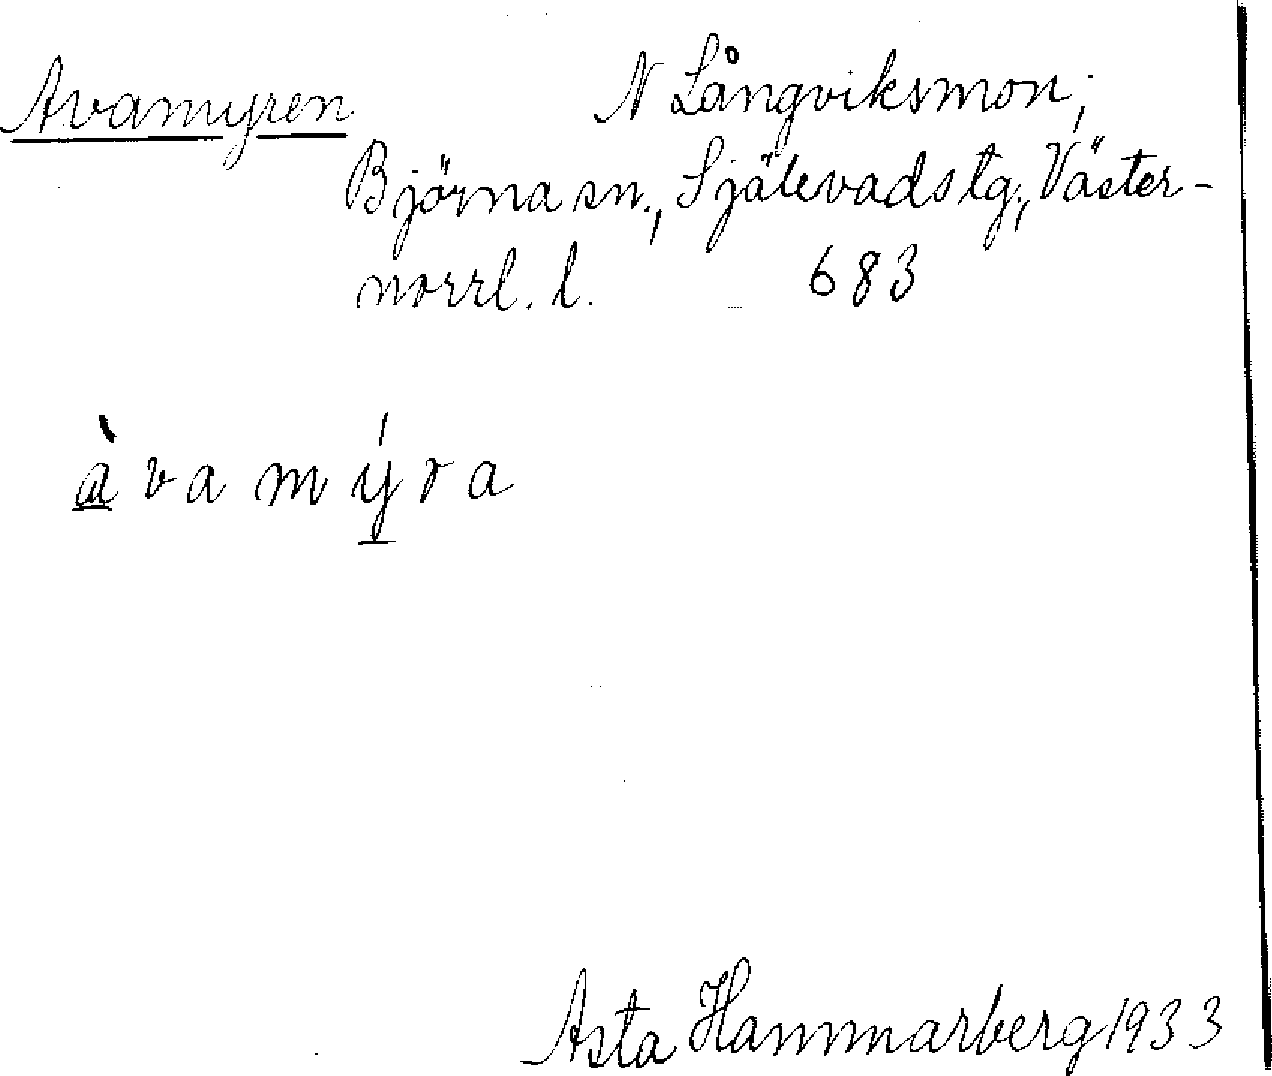 Avamyren N Långviksmon;
Björna sn., Själevads tg., Väster-
norrl. l. 683
àvamýra
Asta Hammarberg 1933